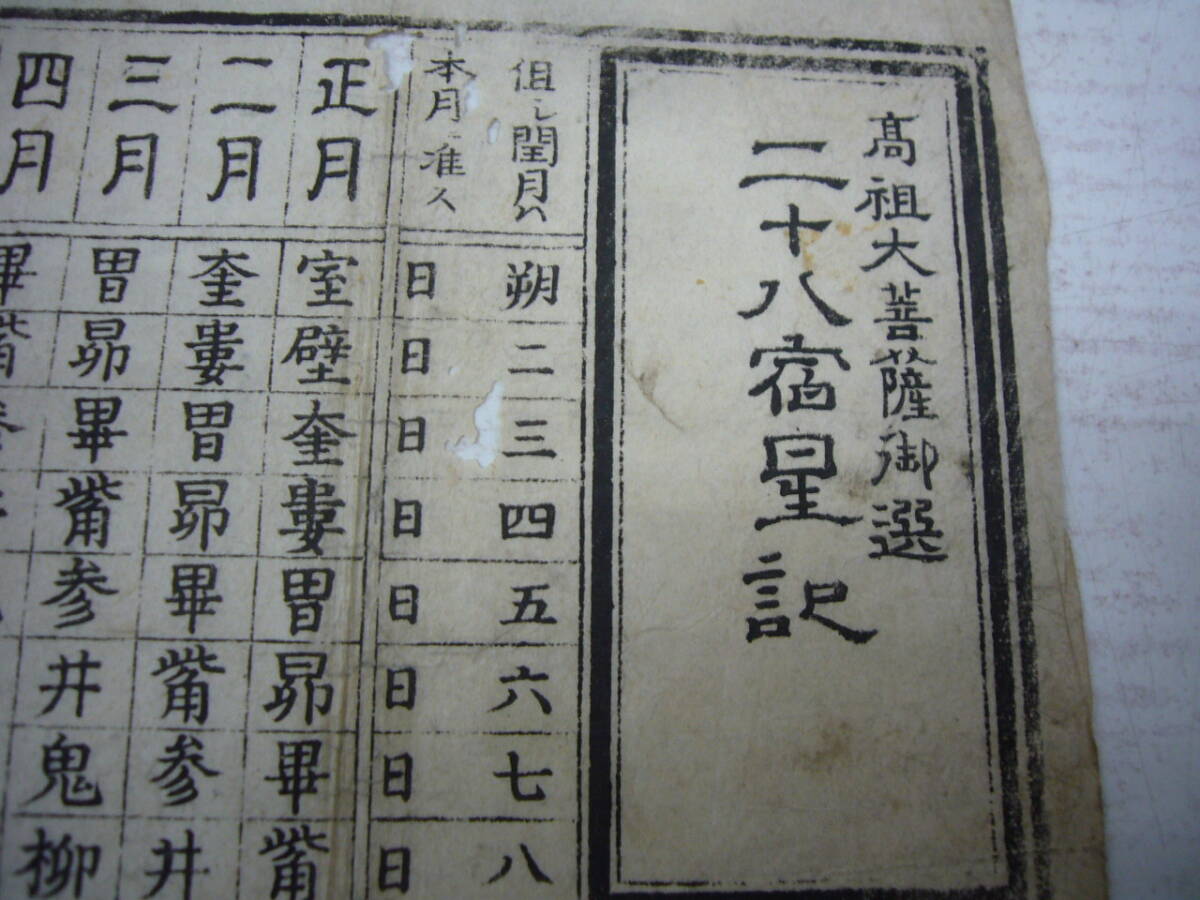 高祖大菩薩御選
二十八宿星記
但し閏月ハ
本月ニ准ス
朔日
二日
三日
四日
五日
六日
七日
八日
正月
室
壁
奎
婁
胃
昴
畢
觜
二月
奎
婁
胃
昴
畢
觜
参
井
三月
胃
昴
畢
觜
参
井
鬼
柳
四月
畢
觜
参